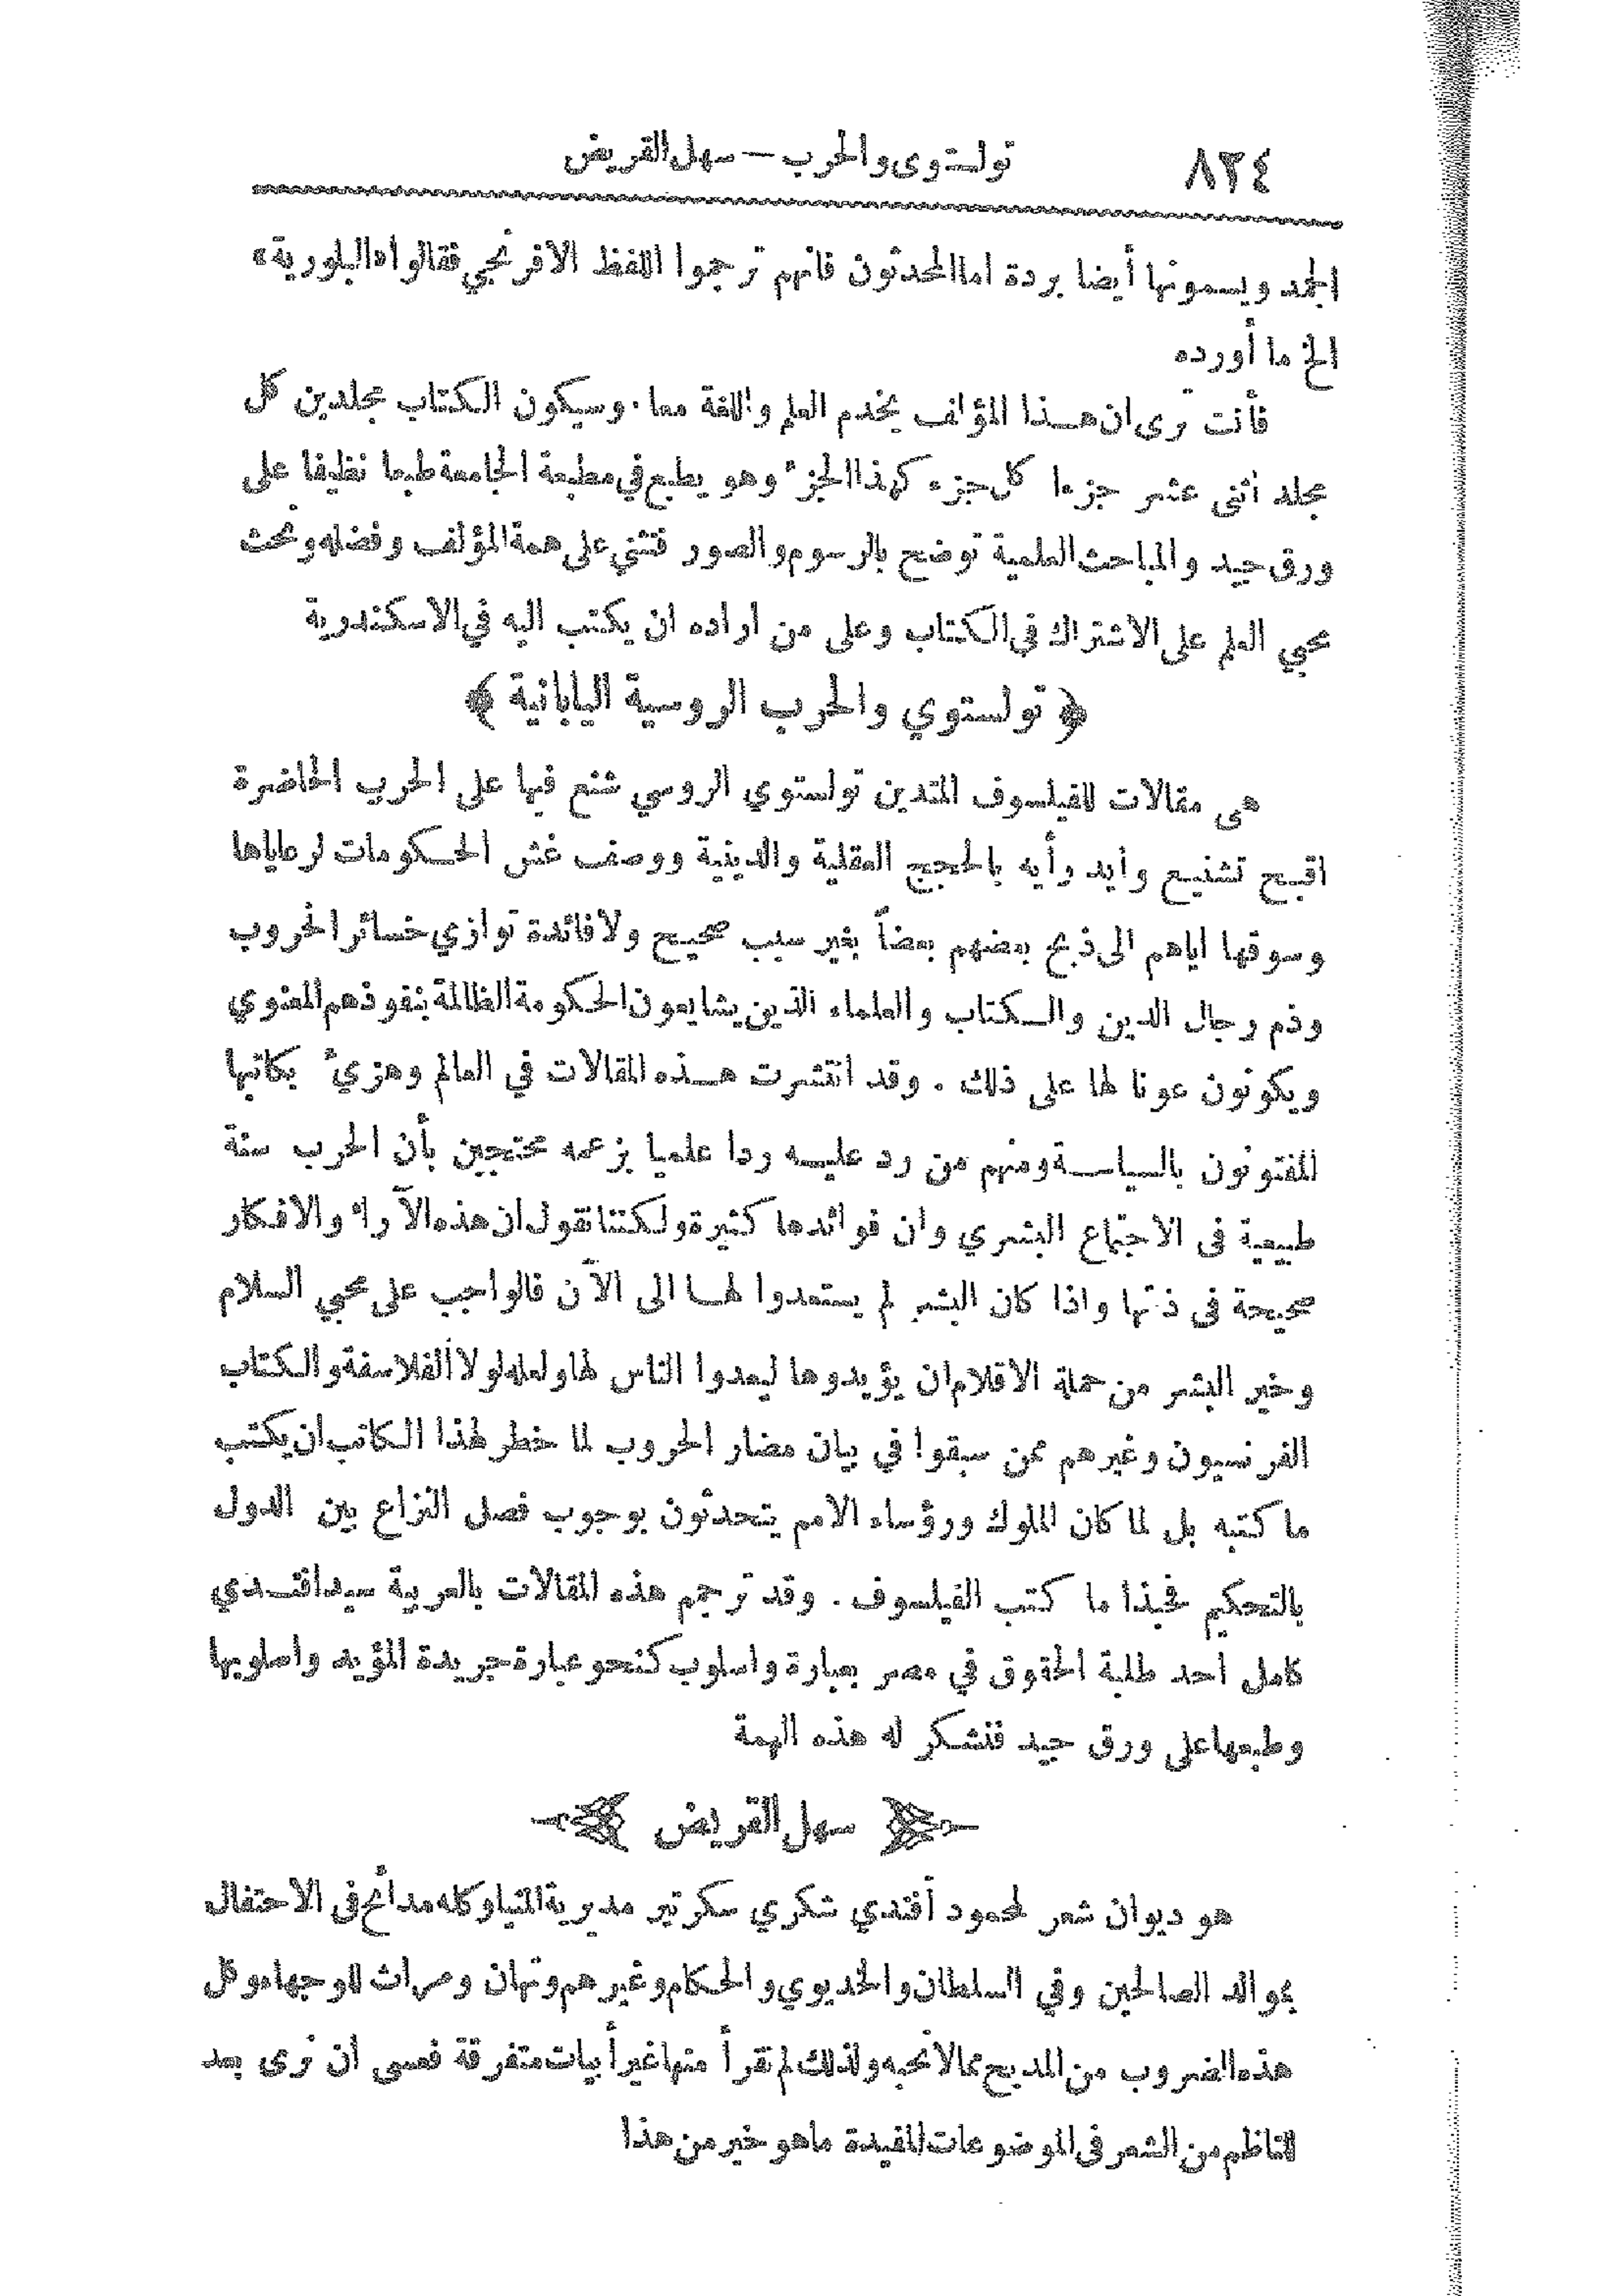 ٨٢٤ تولستوى والحرب – سهل القريض
الجمد ويسمونها أيضا بردة اما المحدثون فانهم ترجموا اللفظ الافرنجي فقالوا «البلورية»
الخ ما أورده
فأنت ترى ان هذا المؤلف يخدم العلم واللغة معا . وسيكون الكتاب مجلدين كل
مجلد اثنى عشر جزءا كل جزء كهذا الجزء وهو يطبع في مطبعة الجامعة طبعا نظيفا على
ورق جيد والمباحث العلمية توضح بالرسوم والصور فنثني على همة المؤلف وفضله ونحث
محبي العلم على الاشتراك في الكتاب وعلى من اراده ان يكتب اليه في الاسكندرية
﴿ تولستوي والحرب الروسية اليابانية ﴾
هى مقالات للفيلسوف المتدين تولستوي الروسي شنع فيها على الحرب الحاضرة
اقبح تشنيع وأيد رأيه بالحجج العقلية والدينية ووصف غش الحكومات لرعاياها
وسوقها اياهم الى ذبح بعضهم بعضاً بغير سبب صحيح ولا فائدة توازي خسائر الحروب
وذم رجال الدين والكتاب والعلماء الذين يشايعون الحكومة الظالمة بنفوذهم المعنوي
ويكونون عونا لها على ذلك . وقد انتشرت هذه المقالات في العالم وهزئ بكاتبها
المفتونون بالسياسة ومنهم من رد عليه ردا علميا بزعمه محتجين بأن الحرب سنة
طبيعية فى الاجتماع البشري وان فوائدها كثيرة ولكننا نقول ان هذه الآراء والافكار
صحيحة فى ذاتها واذا كان البشر لم يستعدوا لها الى الآن فالواجب على محبي السلام
وخير البشر من حملة الاقلام ان يؤيدوها ليعدوا الناس لها ولعله لولا الفلاسفة والكتاب
الفرنسيون وغيرهم ممن سبقوا في بيان مضار الحروب لما خطر لهذا الكاتب ان يكتب
ما كتبه بل لما كان الملوك ورؤساء الامم يتحدثون بوجوب فصل النزاع بين الدول
بالتحكيم فحبذا ما كتب الفيلسوف . وقد ترجم هذه المقالات بالعربية سيد افندي
كامل احد طلبة الحقوق في مصر بعبارة واسلوب كنحو عبارة جريدة المؤيد واسلوبها
وطبعها على ورق جيد فنشكر له هذه الهمة
سهل القريض
هو ديوان شعر لمحمود أفندي شكري سكرتير مديرية المنيا وكله مدائح فى الاحتفال
بموالد الصالحين وفي السلطان والخديوي والحكام وغيرهم وتهان ومراث للوجهاء وكل
هذه الضروب من المديح مما لا نحبه ولذلك لم نقرأ منها غير أبيات متفرقة فعسى أن نرى بعد
للناظم من الشعر فى الموضوعات المفيدة ما هو خير من هذا